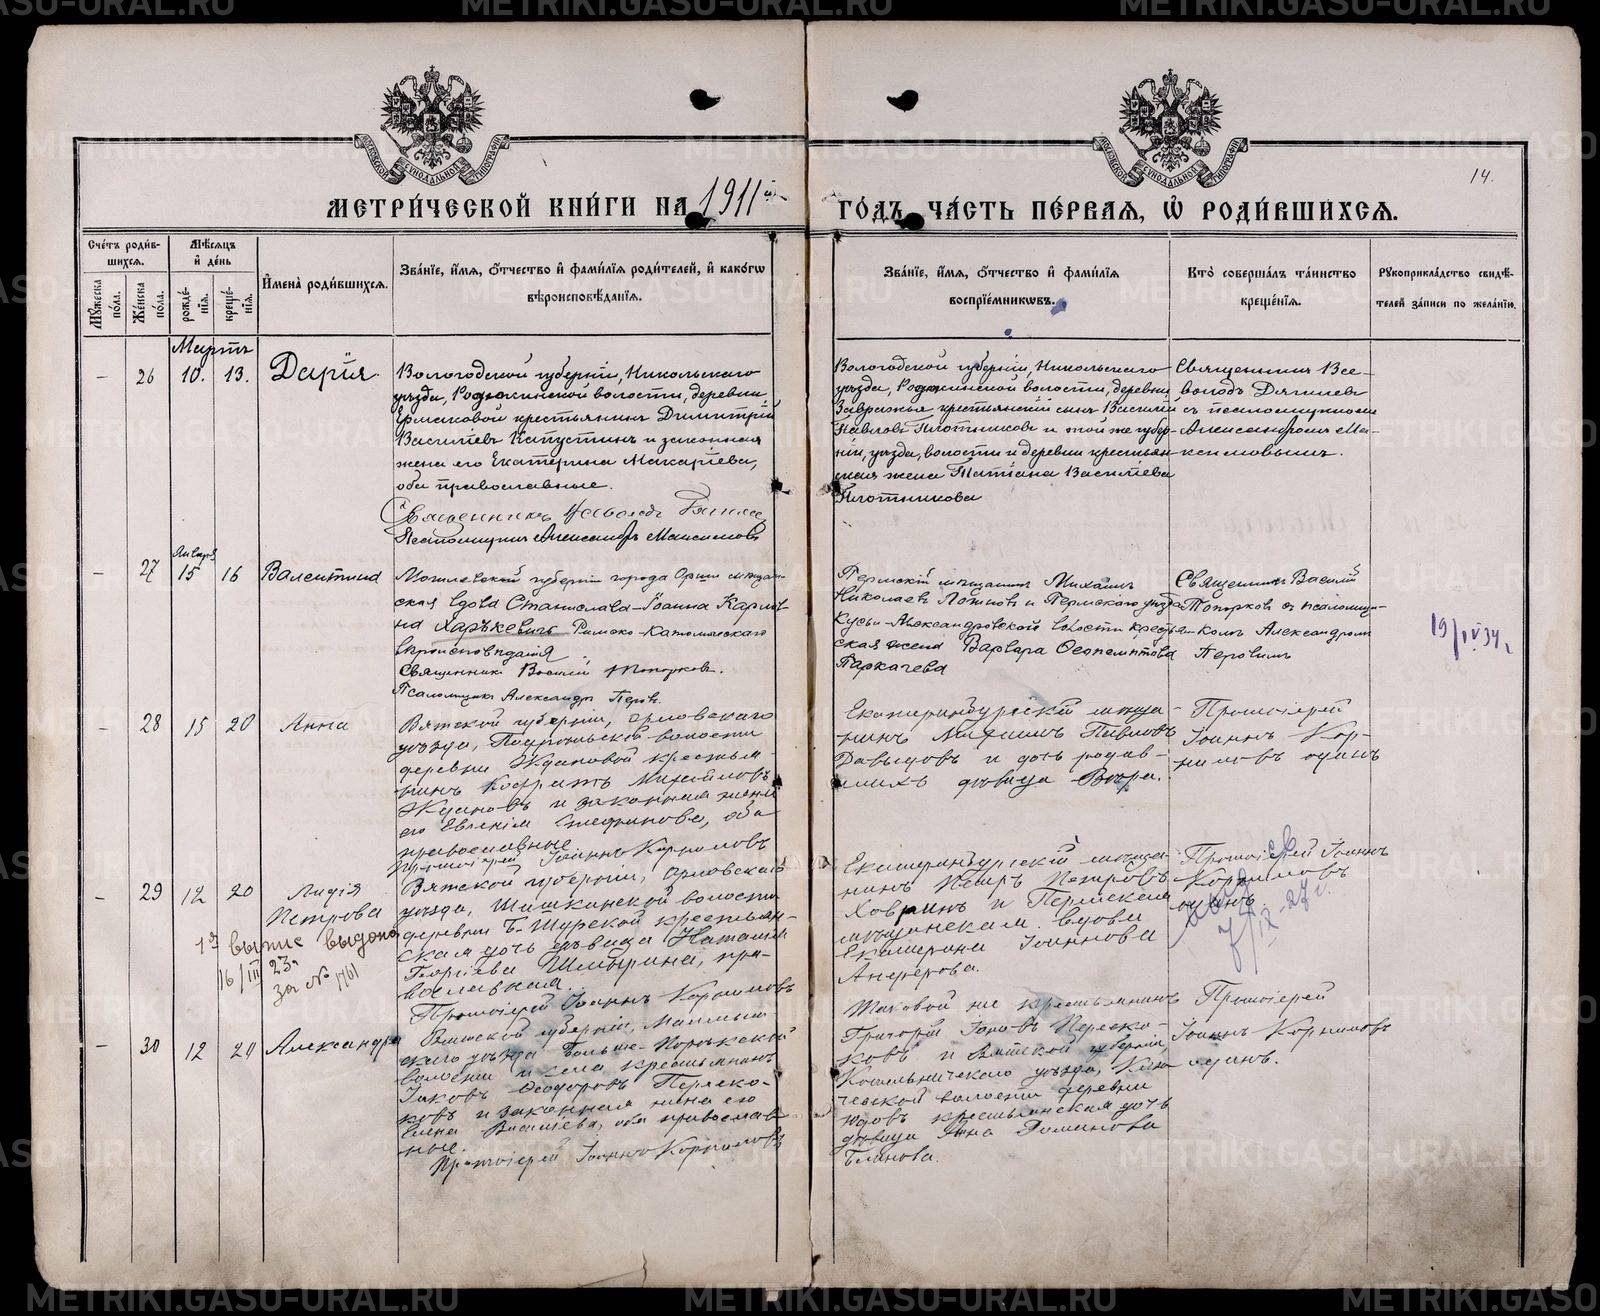 МЕТРИ́ЧЕСКОЙ КНИ́ГИ НА 1911й
ГО́ДЪ, ЧА́СТЬ ПЕ́РВАЯ, Ѿ РОДИ́ВШИХСЯ.
14.
Сче́тъ роди́в-
шихся.
Мѣсяцъ
и де́нь
Мꙋ́жеска по́ла.
Же́нска по́ла.
рожде́-
нїя.
креще́-
нїя.
И҆мена̀ роди́вшихся.
Зва́нїе, и҆́мя, о҆́тчество и҆ фами́лїя роди́телей, и҆ како́гѡ
вѣроисповѣ́данїя.
Зва́нїе, и҆́мя, о҆́тчество и҆ фами́лїя
воспрїе́мникѡвъ.
Кто̀ соверша́лъ та́инство
креще́нїя.
Рꙋкоприкла́дство свидѣ́-
телей за́писи по жела́нїю.
Мартъ
– 26 10. 13. Дарія.
Вологодской губерніи, Никольскаго
уѣзда, волости, деревни
Ермаковой крестьянинъ Димитрій
Васильевъ Капустинъ и законная
жена его Екатерина Макарьева,
оба православные.
Священникъ Всеволодъ
Псаломщикъ Александръ Максимовъ
Вологодской губерніи, Никольскаго
уѣзда, волости, деревни
крестьянскій сынъ Василій
Павловъ Плотниковъ и той же губер-
ніи, уѣзда, волости и деревни крестьян-
ская жена Татіана Васильева
Плотникова
Священникъ Все-
володъ Дягилевъ
съ псаломщикомъ
Александромъ Ма-
ксимовымъ.
Января
– 27 15 16 Валентина
Могилевской губерніи города Орши мѣщан-
ская вдова Станислава-Іоанна Карлов-
на Харъкевичъ Римско-Католическаго
вѣроисповѣданія
Священникъ Василій Топорковъ.
Псаломщикъ Александръ Перовъ.
Пермскій мѣщанинъ Михаилъ
Николаевъ и Пермскаго уѣзда
Кусье-Александровской волости крестьян-
ская жена Варвара
Паркачева
Священникъ Василій
Топорковъ съ псаломщи-
комъ Александромъ
Перовымъ
19/IV 34 г
– 28 15 20 Анна
Вятской губерніи, Орловскаго
уѣзда, волости
деревни Ждановой крестья-
нинъ Михайловъ
Ждановъ и законная жена
его Евгенія Стефанова, оба
православные
Протоіерей Іоаннъ Корниловъ
Екатеринбургскій мѣща-
нинъ Павловъ
Давыдовъ и дочь
дѣвица Вѣра.
Протоіерей
Іоаннъ Кор-
ниловъ одинъ
– 29 12 20 Лидія
Петрова
1ая выпис выдана
16/III 23г
за № 1761
Вятской губерніи, Орловскаго
уѣзда, Шишкинской волости
деревни Б-Шурской крестьян-
ская дочь дѣвица Наталія
Георгіева, пра-
вославная.
Протоіерей Іоаннъ Корниловъ
Екатеринбургскій мѣща-
нинъ Петръ Петровъ
Ховринъ и Пермская
мѣщанская вдова
Екатерина Іоаннова
Анферова.
Протоіерей Іоаннъ
Корниловъ
одинъ.
7/IX-27г.
– 30 12 20 Александра
Вятской губерніи, Малмыж-
скаго уѣзда Больше-Порекской
волости и села крестьянинъ
Іаковъ Ѳеодоровъ Переско-
ковъ и законная жена его
Елена Васильева, оба православ-
ные.
Протоіерей Іоаннъ Корниловъ
Таковой же крестьянинъ
Григорій Іаковъ Переско-
ковъ и Вятской губерніи,
Котельническаго уѣзда,
волости деревни
крестьянская дочь
дѣвица Анна Романова
Блинова.
Протоіерей
Іоаннъ Корниловъ
одинъ.
METRIKI.GASO-URAL.RU